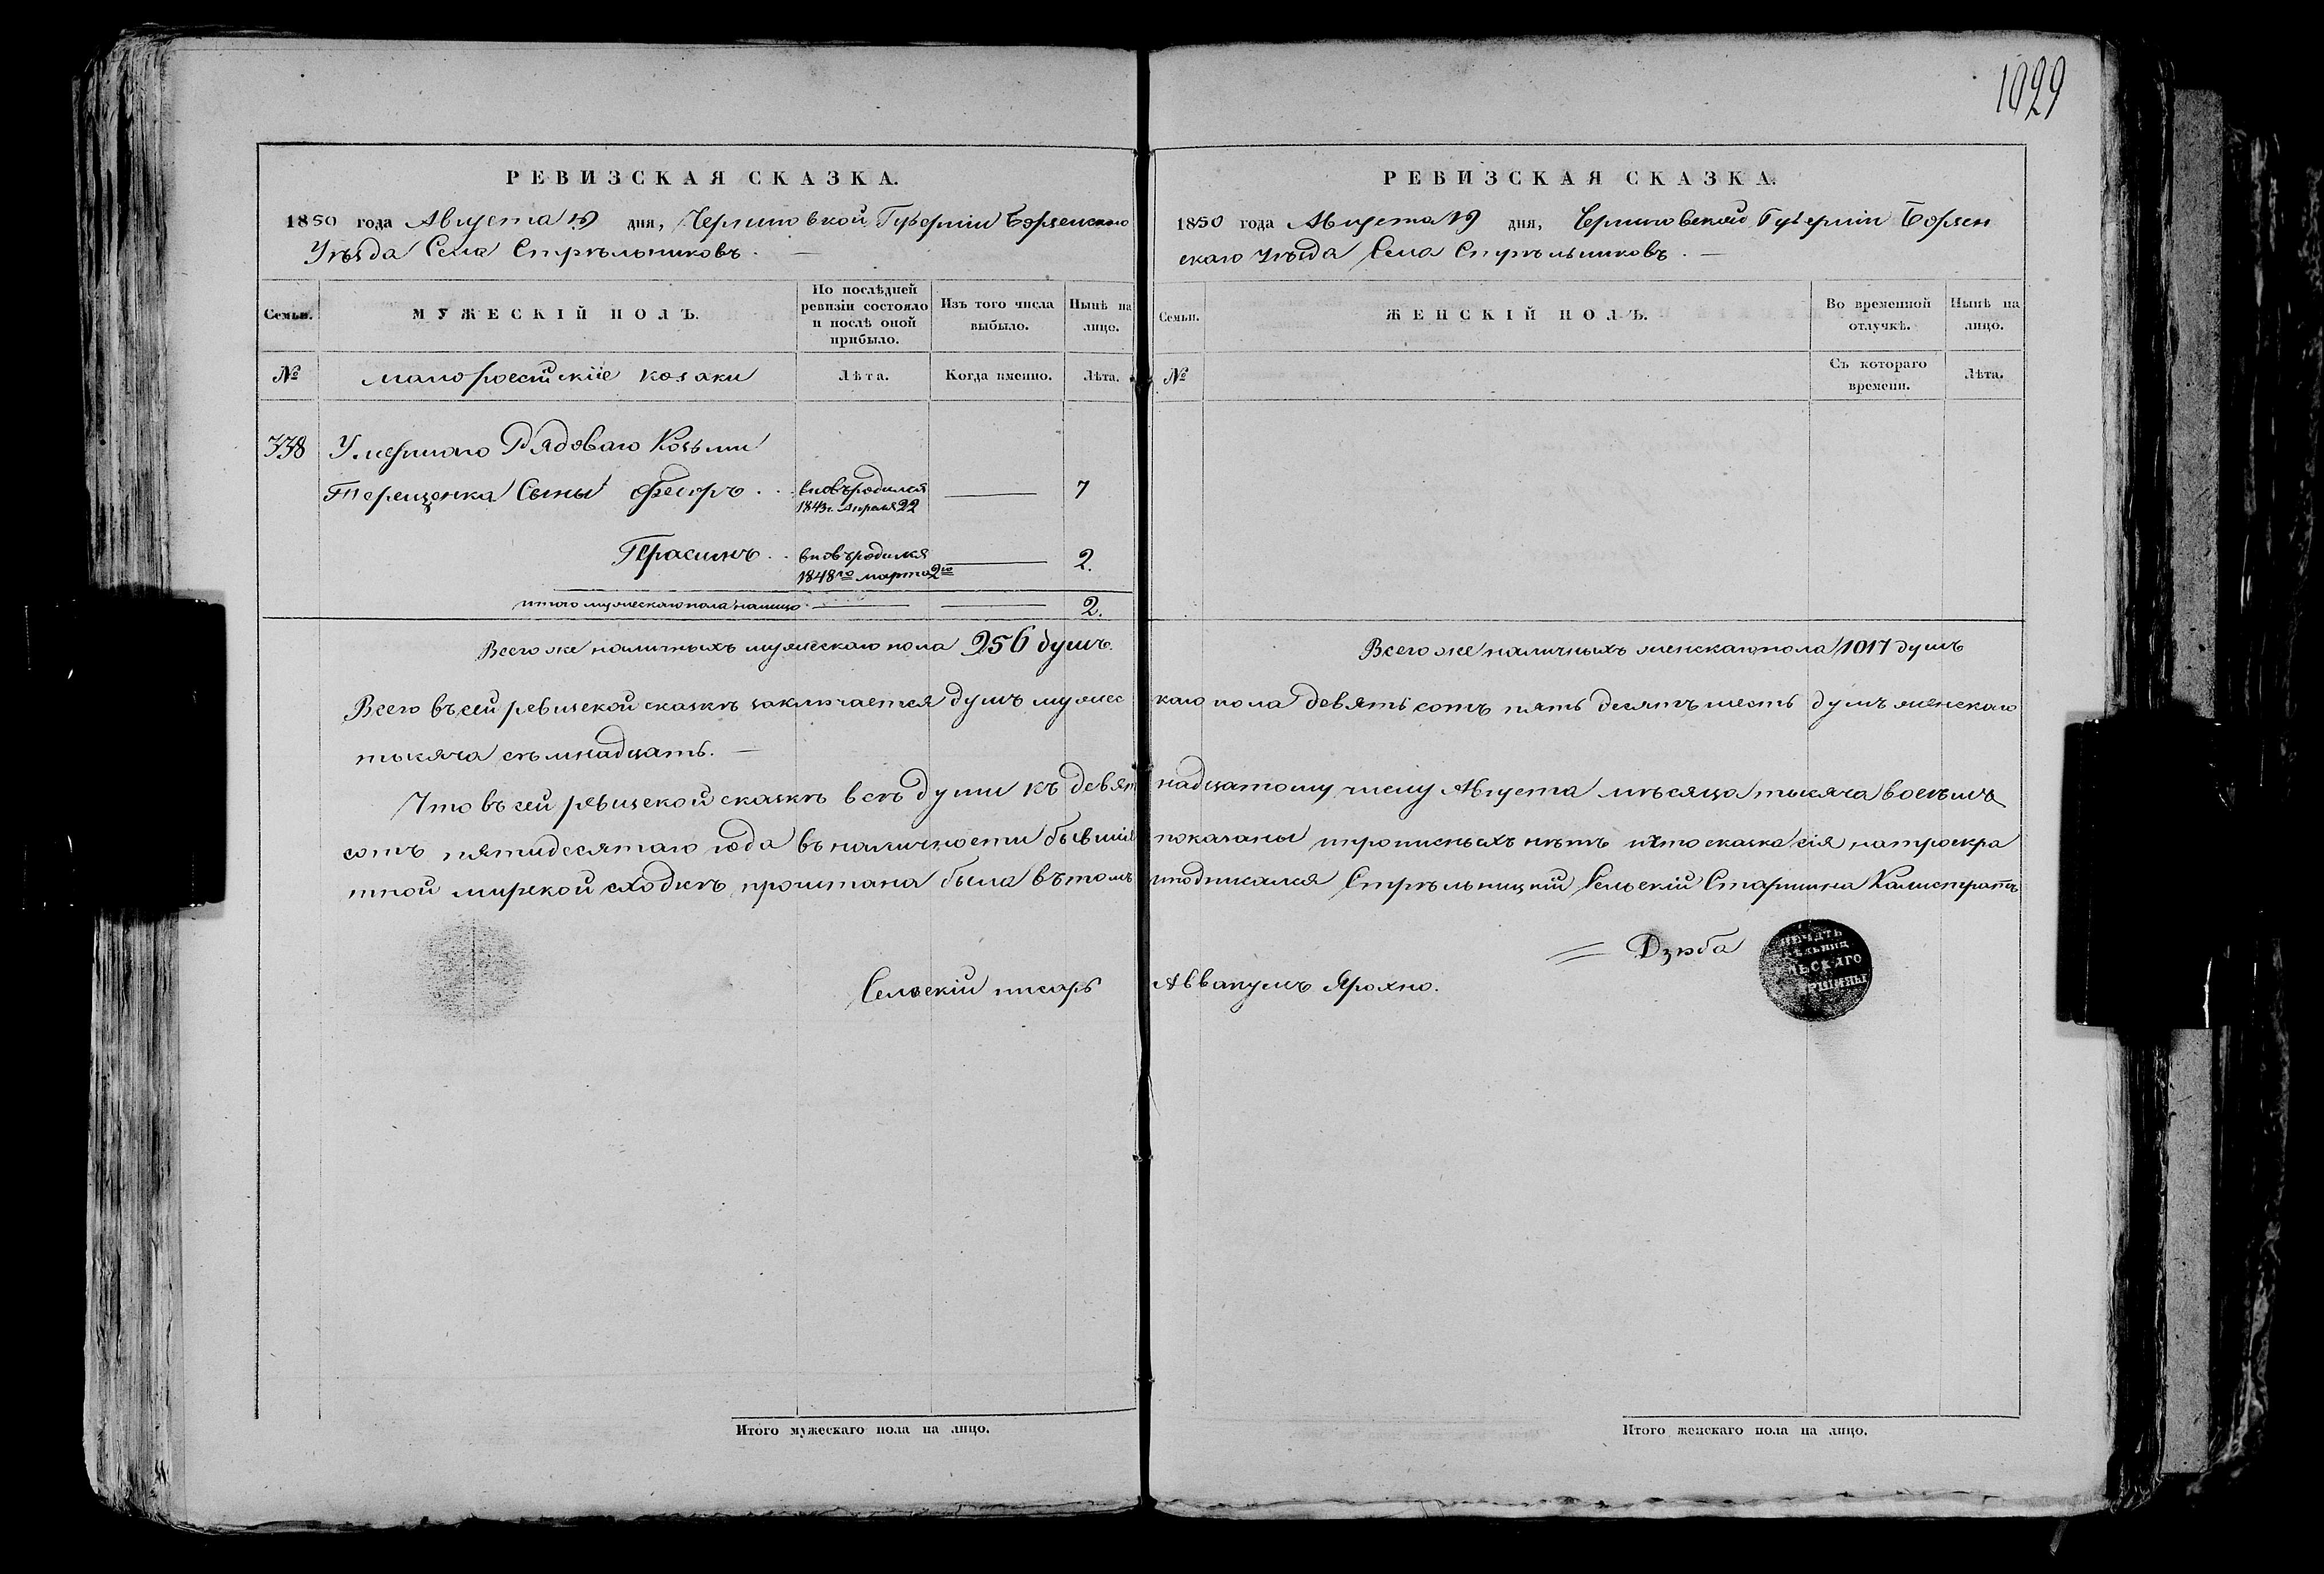 1029
РЕВИЗСКАЯ СКАЗКА.
1850 года Августа 19 дня, Черниговской Губерніи Борзенского
Уѣзда Села Стрѣльниковъ. —
Семьи.
МУЖЕСКІЙ ПОЛЪ.
По послѣдней ревизіи состояло и послѣ оной прибыло.
Изъ того числа выбыло.
Нынѣ на лицо.
№
малороссійскіе козаки
Лѣта.
Когда именно.
Лѣта.
338 Умершаго Рядоваго Козьми
Терещенка Сыны Феоръ . . вновъродился 1843г. Апреля 22 — 7
Герасимъ . . вновъродился 1848го марта 2го — 2.
итого мужескаго пола налицо — — 2.
Всего же наличныхъ мужескаго пола 956 душъ.
РЕВИЗСКАЯ СКАЗКА.
1850 года Августа 19 дня, Черниговской Губерніи Борзен
скаго Уѣзда Села Стрѣльниковъ. —
Семьи.
ЖЕНСКІЙ ПОЛЪ.
Во временной отлучкѣ.
Нынѣ на лицо.
№
Съ котораго времени.
Лѣта.
Всего же наличныхъ женскаго пола 1017 душъ
Всего въ сей ревизской сказкѣ заключается душъ мужес каго пола девятьсотъ пятьдесятъ шесть душъ женскаго
тысяча сѣмнадцать. —
Что въ сей ревизской сказкѣ всѣ души къ девят надцатому числу Августа мѣсяца тысяча восемъ
сотъ пятидесятаго года въ наличности бывшія показаны и прописныхъ нѣтъ и что сказка сія на троекра
тной мирской сходкѣ прочитана была въ томъ и подписался Стрѣльницкій Сельскій Старшина Калистратъ
Дзюба
Сельскій писарь Аввакумъ Ярохно.
ПЕЧАТЬ
Итого мужескаго пола на лицо.
Итого женскаго пола на лицо.